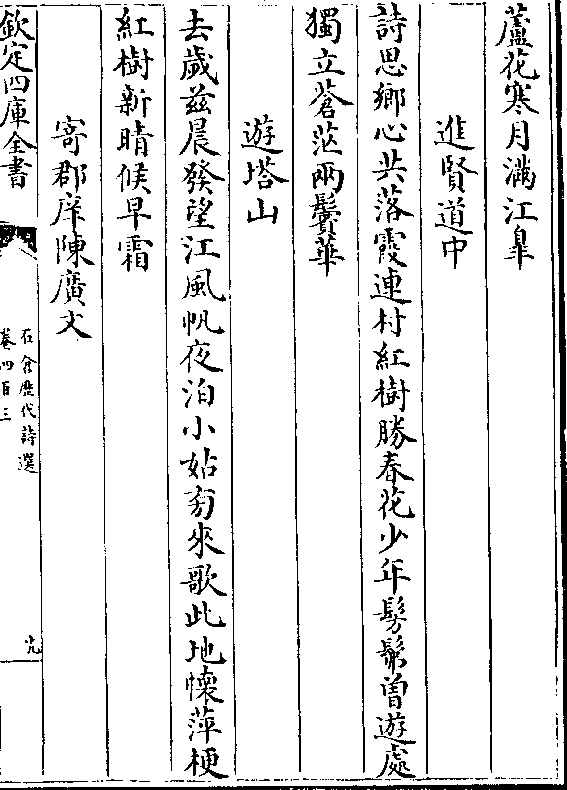 蘆花寒月滿江臯
進賢道中
詩思鄉心共落霞連村紅樹勝春花少年髣髴曽遊處
獨立蒼茫兩鬢華
遊塔山
去歲茲晨發望江風帆夜泊小姑㫄來歌此地懐萍梗
紅樹新晴候早霜
寄郡庠陳廣文
欽定四庫全書
石倉歴代詩選
卷四百三